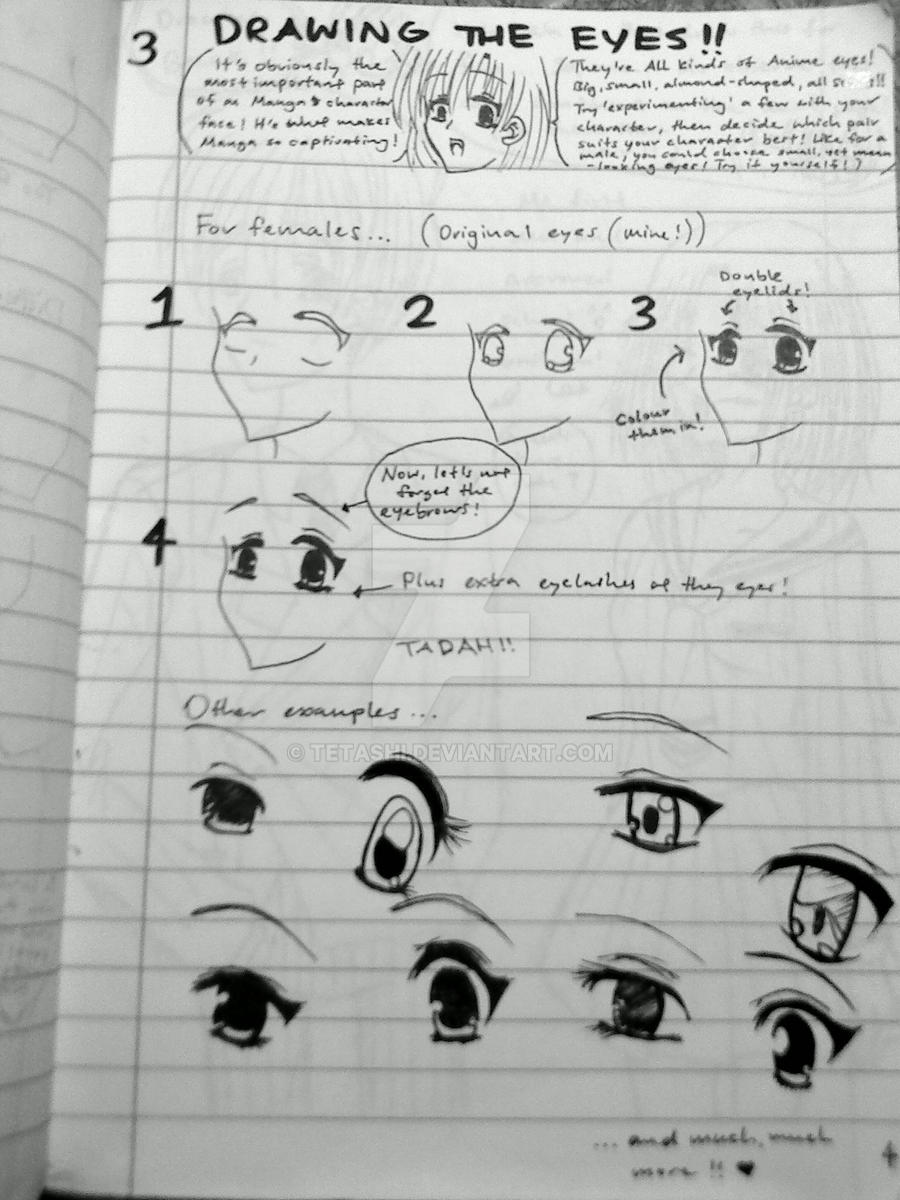 3 DRAWING THE EYES!!
It's obviously the
most important part
of a Manga's character
face! It's what makes
Manga so captivating!
They're All kinds of Anime eyes!
Big, small, almond-shaped, all
Try 'experimenting' a few with your
character, then decide which pair
suits your character best! Like for a
male, you could choose small, yet mean
-looking eyes! Try it yourself!)
For females... (Original eyes (mine!))
1
2
3
Double
eyelids!
Colour
them in!
4
Now, let's not
forget the
eyebrows!
Plus extra eyelashes at they eyes!
TADAH!!
Other examples...
© TETASHI.DEVIANTART.COM
... and much, much
more!! ♥
4